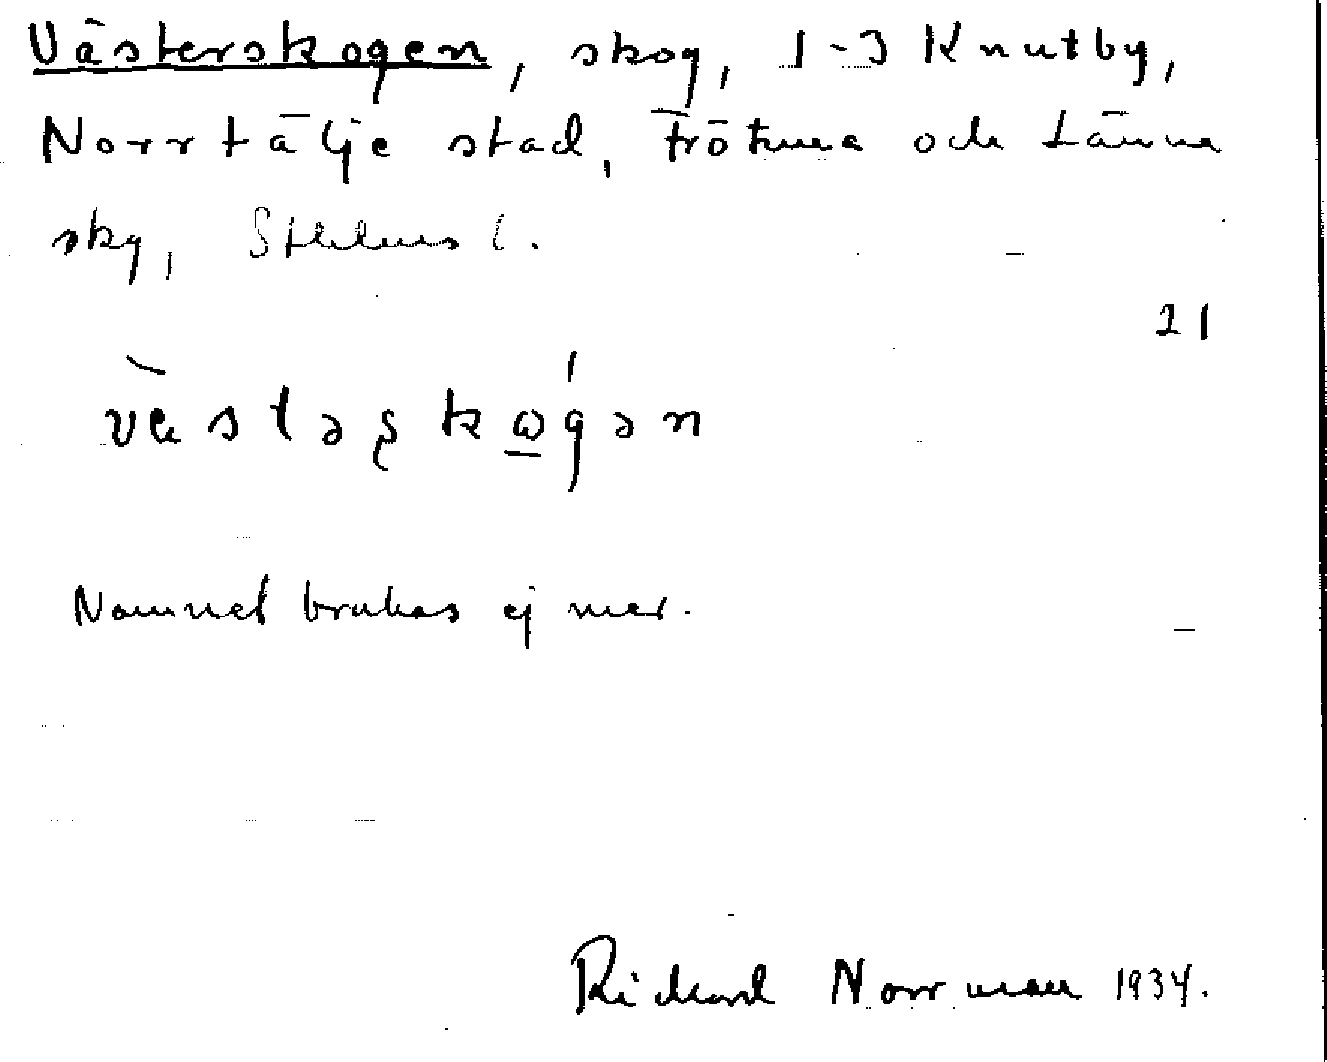 Västerskogen, skog, 1-3 Knutby,
Norrtälje stad, Frötuna och Länna
skg, Sthlms l.
21
væ̀stəʂkωgən
Namnet brukas ej mer.
Rickard Norrman 1934.